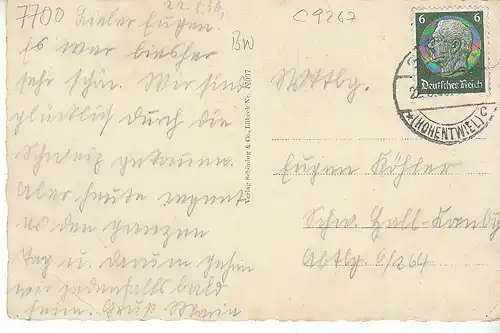 7700
22.8.36,
C9267
BW
Lieber Eugen.
Es war biesher
sehr schön. Wir sind
glücklich durch die
Schweiz gekommen.
Aber heute regent
es den ganzen
Tag u. darum gehen
wir jedenfalls bald
heim. Gruß Maria
Verlag Schöning & Co., Lübeck Nr.
6
6
Deutsches Reich
(HOHENTWIEL) C
Wttbg.
Eugen Köhler
Schw. Hall-
Abtlg 6/264